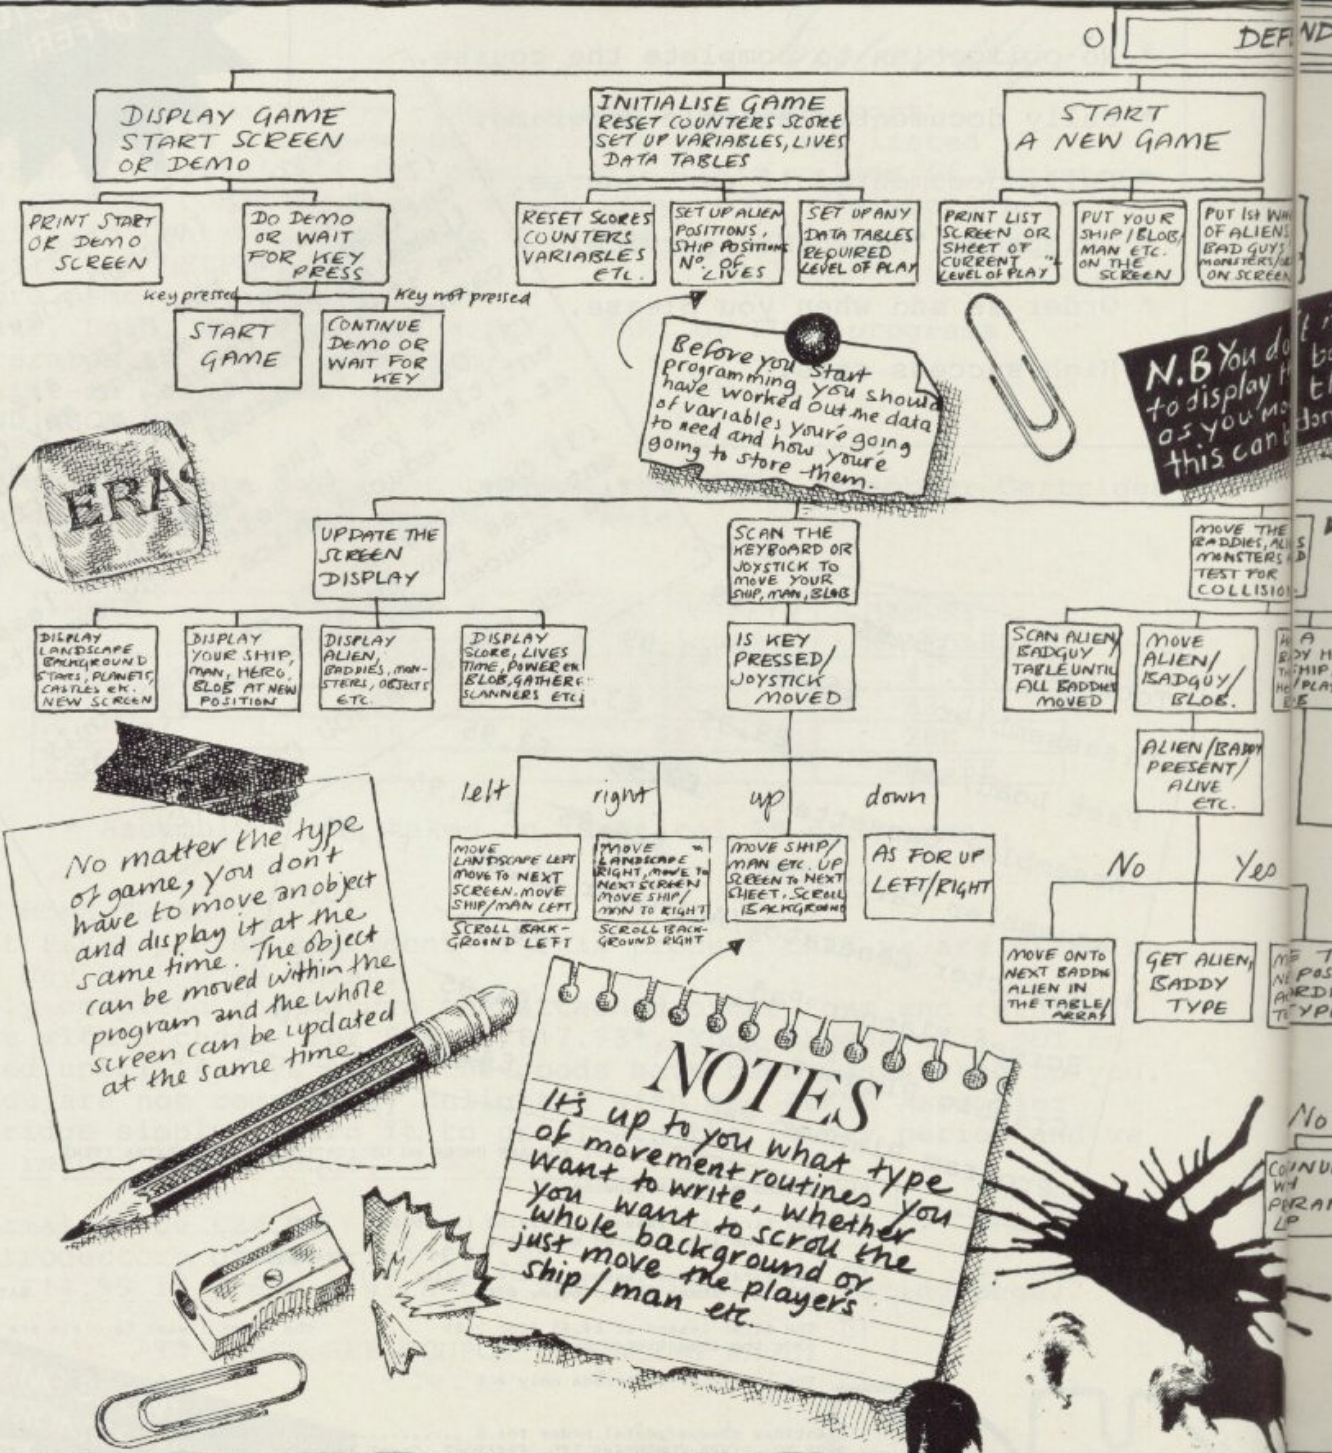 DISPLAY GAME
START SCREEN
OR DEMO
INITIALISE GAME
RESET COUNTERS SCORE
SET UP VARIABLES, LIVES
DATA TABLES
START
A NEW GAME
PRINT START
OR DEMO
SCREEN
DO DEMO
OR WAIT
FOR KEY
PRESS
RESET SCORES
COUNTERS
VARIABLES
ETC.
SET UP ALIEN
POSITIONS,
SHIP POSITIONS
No. OF
LIVES
SET UP ANY
DATA TABLES
REQUIRED
LEVEL OF PLAY
PRINT LIST
SCREEN OR
SHEET OF
CURRENT
LEVEL OF PLAY
PUT YOUR
SHIP/BLOB,
MAN ETC.
ON THE
SCREEN
PUT 1st
OF ALIENS
BAD GUYS
MONSTERS/
ON SCREEN
key pressed
key not pressed
START
GAME
CONTINUE
DEMO OR
WAIT FOR
KEY
Before you start
programming you should
have worked out the data
of variables you're going
to need and how you're
going to store them.
N.B You do
to display
as you
this can
ERA
UPDATE THE
SCREEN
DISPLAY
SCAN THE
KEYBOARD OR
JOYSTICK TO
MOVE YOUR
SHIP, MAN, BLOB
MOVE THE
BADDIES,
MONSTERS
TEST FOR
COLLISION
DISPLAY
LANDSCAPE
BACKGROUND
STARS, PLANETS,
CASTLES etc.
NEW SCREEN
DISPLAY
YOUR SHIP,
MAN, HERO,
BLOB AT NEW
POSITION
DISPLAY
ALIEN,
BADDIES, MON-
STERS, OBJECTS
ETC.
DISPLAY
SCORE, LIVES
TIME, POWER etc
BLOB, GATHER
SCANNERS ETC
IS KEY
PRESSED/
JOYSTICK
MOVED
SCAN ALIEN/
BADGUY
TABLE UNTIL
ALL BADDIES
MOVED
MOVE
ALIEN/
BADGUY/
BLOB.
ALIEN/BADDY
PRESENT/
ALIVE
ETC.
left
right
up
down
MOVE
LANDSCAPE LEFT
MOVE TO NEXT
SCREEN. MOVE
SHIP/MAN LEFT
SCROLL BACK-
GROUND LEFT
MOVE
LANDSCAPE
RIGHT, MOVE TO
NEXT SCREEN
MOVE SHIP/
MAN TO RIGHT
SCROLL BACK-
GROUND RIGHT
MOVE SHIP/
MAN ETC. UP
SCREEN TO NEXT
SHEET. SCROLL
BACKGROUND
AS FOR UP
LEFT/RIGHT
No
Yes
MOVE ONTO
NEXT BADDIE
ALIEN IN
THE TABLE/
ARRAY
GET ALIEN,
BADDY
TYPE
No matter the type
of game, you don't
have to move an object
and display it at the
same time. The object
can be moved within the
program and the whole
screen can be updated
at the same time.
NOTES
It's up to you what type
of movement routines you
want to write, whether
you want to scroll the
whole background or
just move the players
ship/man etc.
No